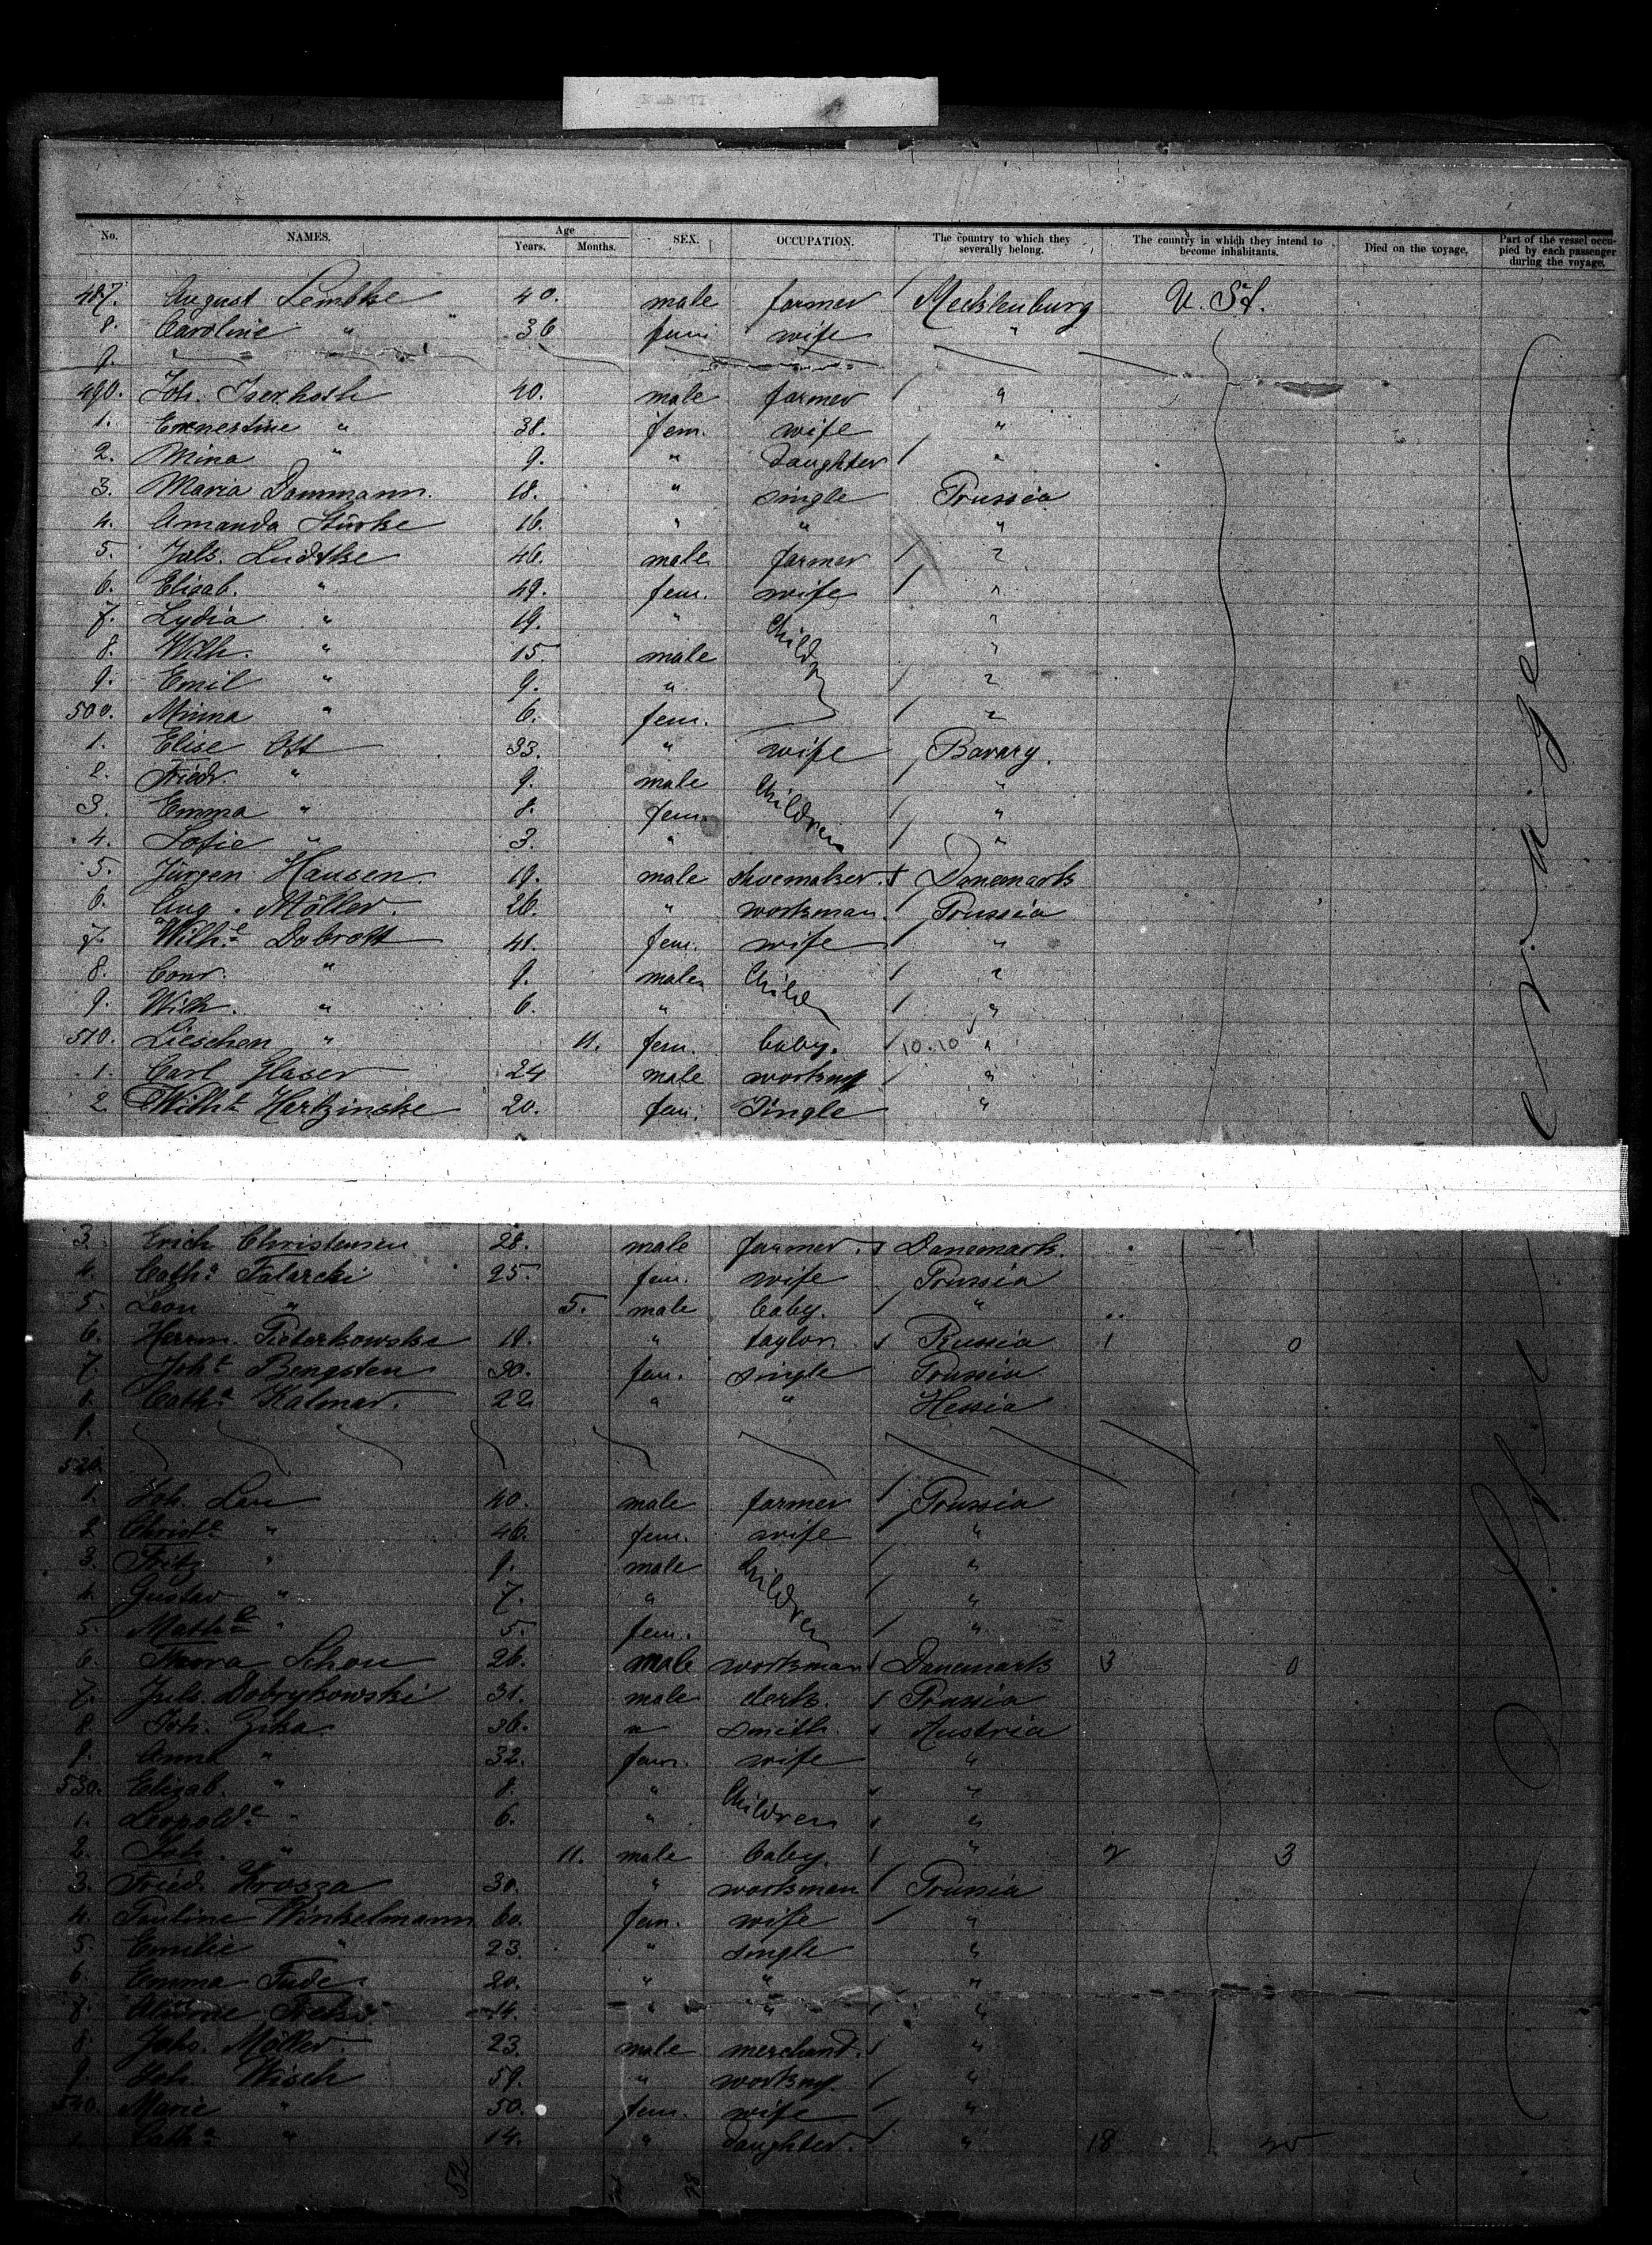 No. NAMES. Age Years. Months. SEX. OCCUPATION. The country to which they severally belong. The country in which they intend to become inhabitants. Died on the voyage. Part of the vessel occupied by each passenger during the voyage.
487. August Lembke 40. male farmer / Mecklenburg U. St.
8. Caroline " 36 fem. wife "
9.
490. Joh. Iserhoth 40. male farmer / "
1. Ernestine " 38. fem. wife "
2. Mina " 9. " daughter / "
3. Maria Dammann. 18. " single Prussia
4. Amanda Stürke 16. " " "
5. Juls. Ludtke 46. male farmer / "
6. Elisab. " 49. fem. wife / "
7. Lydia " 19. " Childr "
8. Wilh. " 15. male "
9. Emil " 9. " / "
500. Minna " 6. fem. / "
1. Elise Ott 33. " wife / Bavary.
2. Friedr. " 9. male Children "
3. Emma " 8. fem. / "
4. Sofie " 3. " / "
5. Jürgen Hansen. 19. male shoemaker. / Danemark
6. Aug. Möller. 26. " workman. / Prussia
7. Wilhe Dobrott 41. fem. wife / "
8. Conr. " 9. male Child / "
9. Wilh. " 6. " / "
510. Lieschen " 11. fem. baby. / 10.10 "
1. Carl Glaser 24 male workm / "
2. Wilhe Hartzinske 20. fem. Single "
3. Erich Christensen 28. male farmer. / Danemark.
4. Catha Talarcki 25. fem. wife Prussia
5. Leon " 5. male baby. / "
6. Herrm. Pieterkowske 19. " taylor. / Russia 1 0
7. Johe Bengsten 30. fem. single Prussia
8. Catha Kalmar. 22. " " Hessia
9.
520.
1. Joh. Lau 40. male farmer / Prussia
2. Christe " 46. fem. wife / "
3. Fritz " 9. male Children / "
4. Gustav " 7. " / "
5. Mathe " 5. fem. / "
6. Schou 26. male workman / Danemark 3 0
7. Juls. Dobrykowski 31. male clerk. / Prussia
8. Joh. Zika 36. " smith. / Austria
9. Anna " 32. fem. wife "
530. Elisab. " 8. " Children / "
1. Leopolde " 6. " / "
2. Joh. " 11. male baby. / " 2 3
3. Fried. Krosza 30. " workman / Prussia
4. Pauline Winkelmann 60. fem. wife / "
5. Emilie " 23. " single "
6. Emma Tude. 20. " " "
7. 14. " " / "
8. Johs. Möller 23. male merchand. / "
9. Joh. Wisch 59. " workm. / "
540. Marie " 50. fem. wife / "
1. Catha " 14. " daughter. / " 18
52